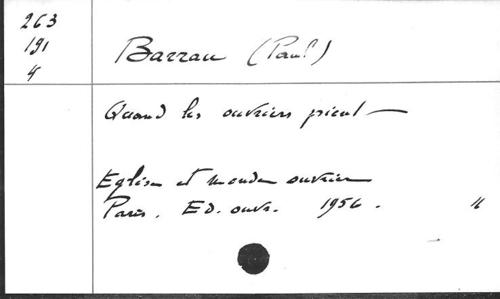 263
191
4
Barrau (Paul)
Quand les ouvriers prient —
Eglise et monde ouvrier
Paris. Ed. ouvr. 1956.